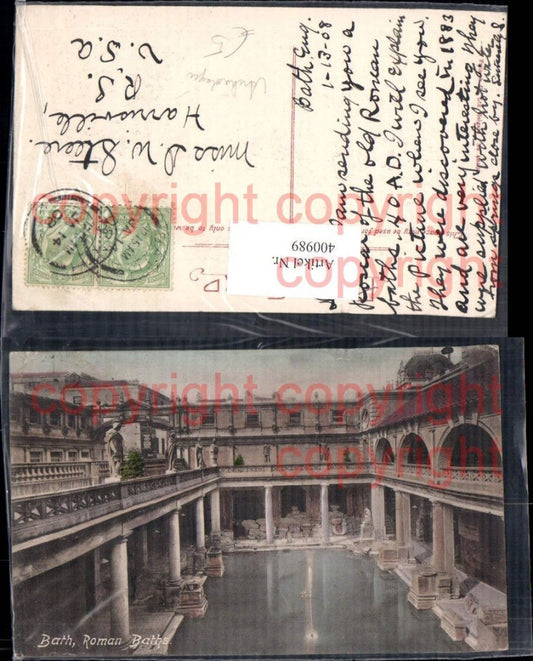 Bath, Eng.
1-13-08
I am sending you a
power of the old Roman
baths, 40 A.D. I will explain
the picture when I see you.
They were discovered in 1883
and are very interesting. They
were supplied with hot water
from springs close by.
Miss D. W. Steere.
Harrisville,
R.S.
U.S.A
£5
Artikel Nr.
400989
copyright copyright
copyright copyright
copyright
Bath, Roman Baths.
copyright copyright
copyright copyright
copyright